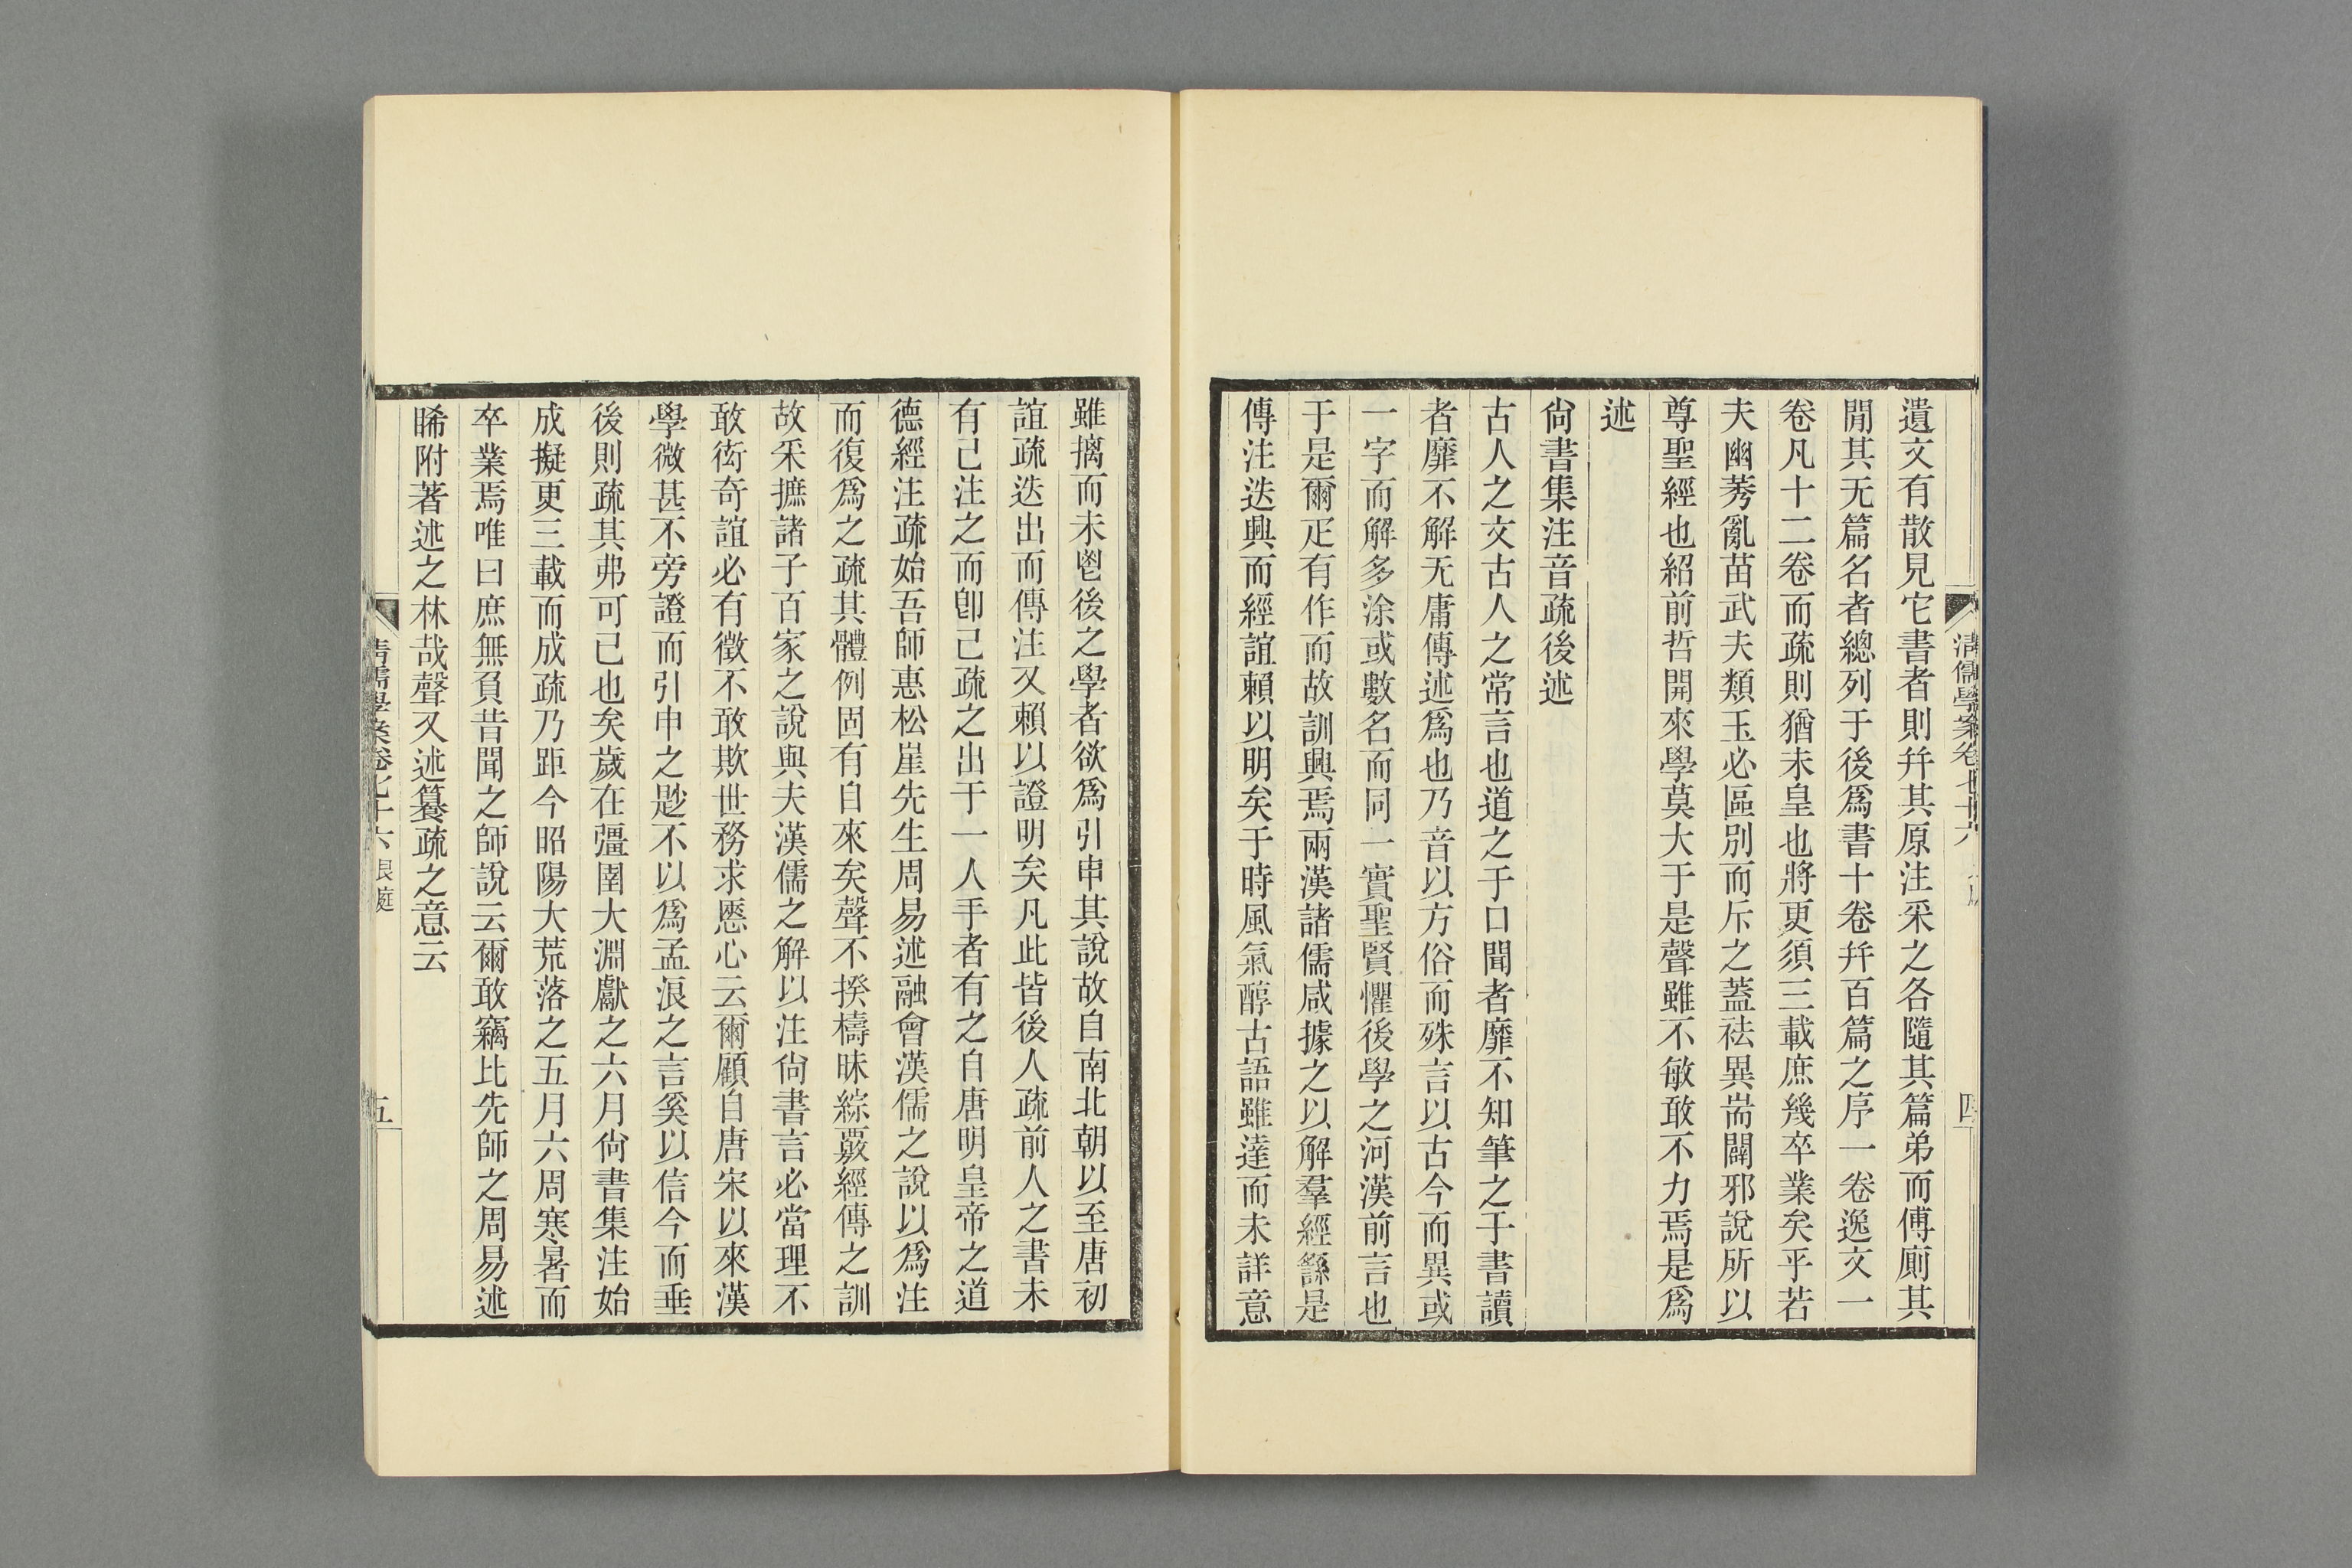 遺文有散見它書者則幷其原注采之各隨其篇弟而傅廁其
閒其无篇名者總列于後爲書十卷幷百篇之序一卷逸文一
卷凡十二卷而疏則猶未皇也將更須三載庶幾卒業矣乎若
夫幽莠亂苗武夫類玉必區別而斥之蓋祛異耑闢邪說所以
尊聖經也紹前哲開來學莫大于是聲雖不敏敢不力焉是爲
述
尙書集注音疏後述
古人之文古人之常言也道之于口聞者靡不知筆之于書讀
者靡不解无庸傳述爲也乃音以方俗而殊言以古今而異或
一字而解多涂或數名而同一實聖賢懼後學之河漢前言也
于是爾疋有作而故訓興焉兩漢諸儒咸據之以解羣經繇是
傳注迭興而經誼賴以明矣于時風氣醇古語雖達而未詳意
清儒學案卷七十六
四
雖摛而未鬯後之學者欲爲引申其說故自南北朝以至唐初
誼疏迭出而傳注又賴以證明矣凡此皆後人疏前人之書未
有己注之而卽己疏之出于一人手者有之自唐明皇帝之道
德經注疏始吾師惠松崖先生周易述融會漢儒之說以爲注
而復爲之疏其體例固有自來矣聲不揆檮昧綜覈經傳之訓
故采摭諸子百家之說與夫漢儒之解以注尙書言必當理不
敢衒奇誼必有徵不敢欺世務求愜心云爾顧自唐宋以來漢
學微甚不旁證而引申之尟不以爲孟浪之言奚以信今而垂
後則疏其弗可已也矣歲在彊圉大淵獻之六月尙書集注始
成擬更三載而成疏乃距今昭陽大荒落之五月六周寒暑而
卒業焉唯曰庶無負昔聞之師說云爾敢竊比先師之周易述
睎附著述之林哉聲又述篹疏之意云
清儒學案卷七十六 艮庭
五